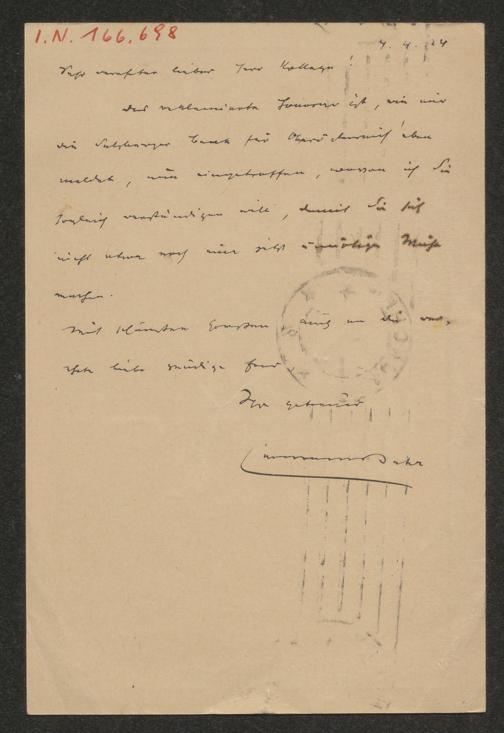 I.N. 166.698
4. 4. 24
Sehr verehrter lieber Herr Kollege!
das reklamierte Honorar ist, wie mir
die Salzburger Bank für Oberösterreich eben
meldet, nun eingetroffen, wovon ich Sie
sogleich verständigen will, damit Sie sich
nicht etwa noch einmal unnötige Mühe
machen.
Mit schönsten Grüssen, auch an die ver-
ehrte liebe gnädige Frau
Ihr getreuer
Hermann Bahr